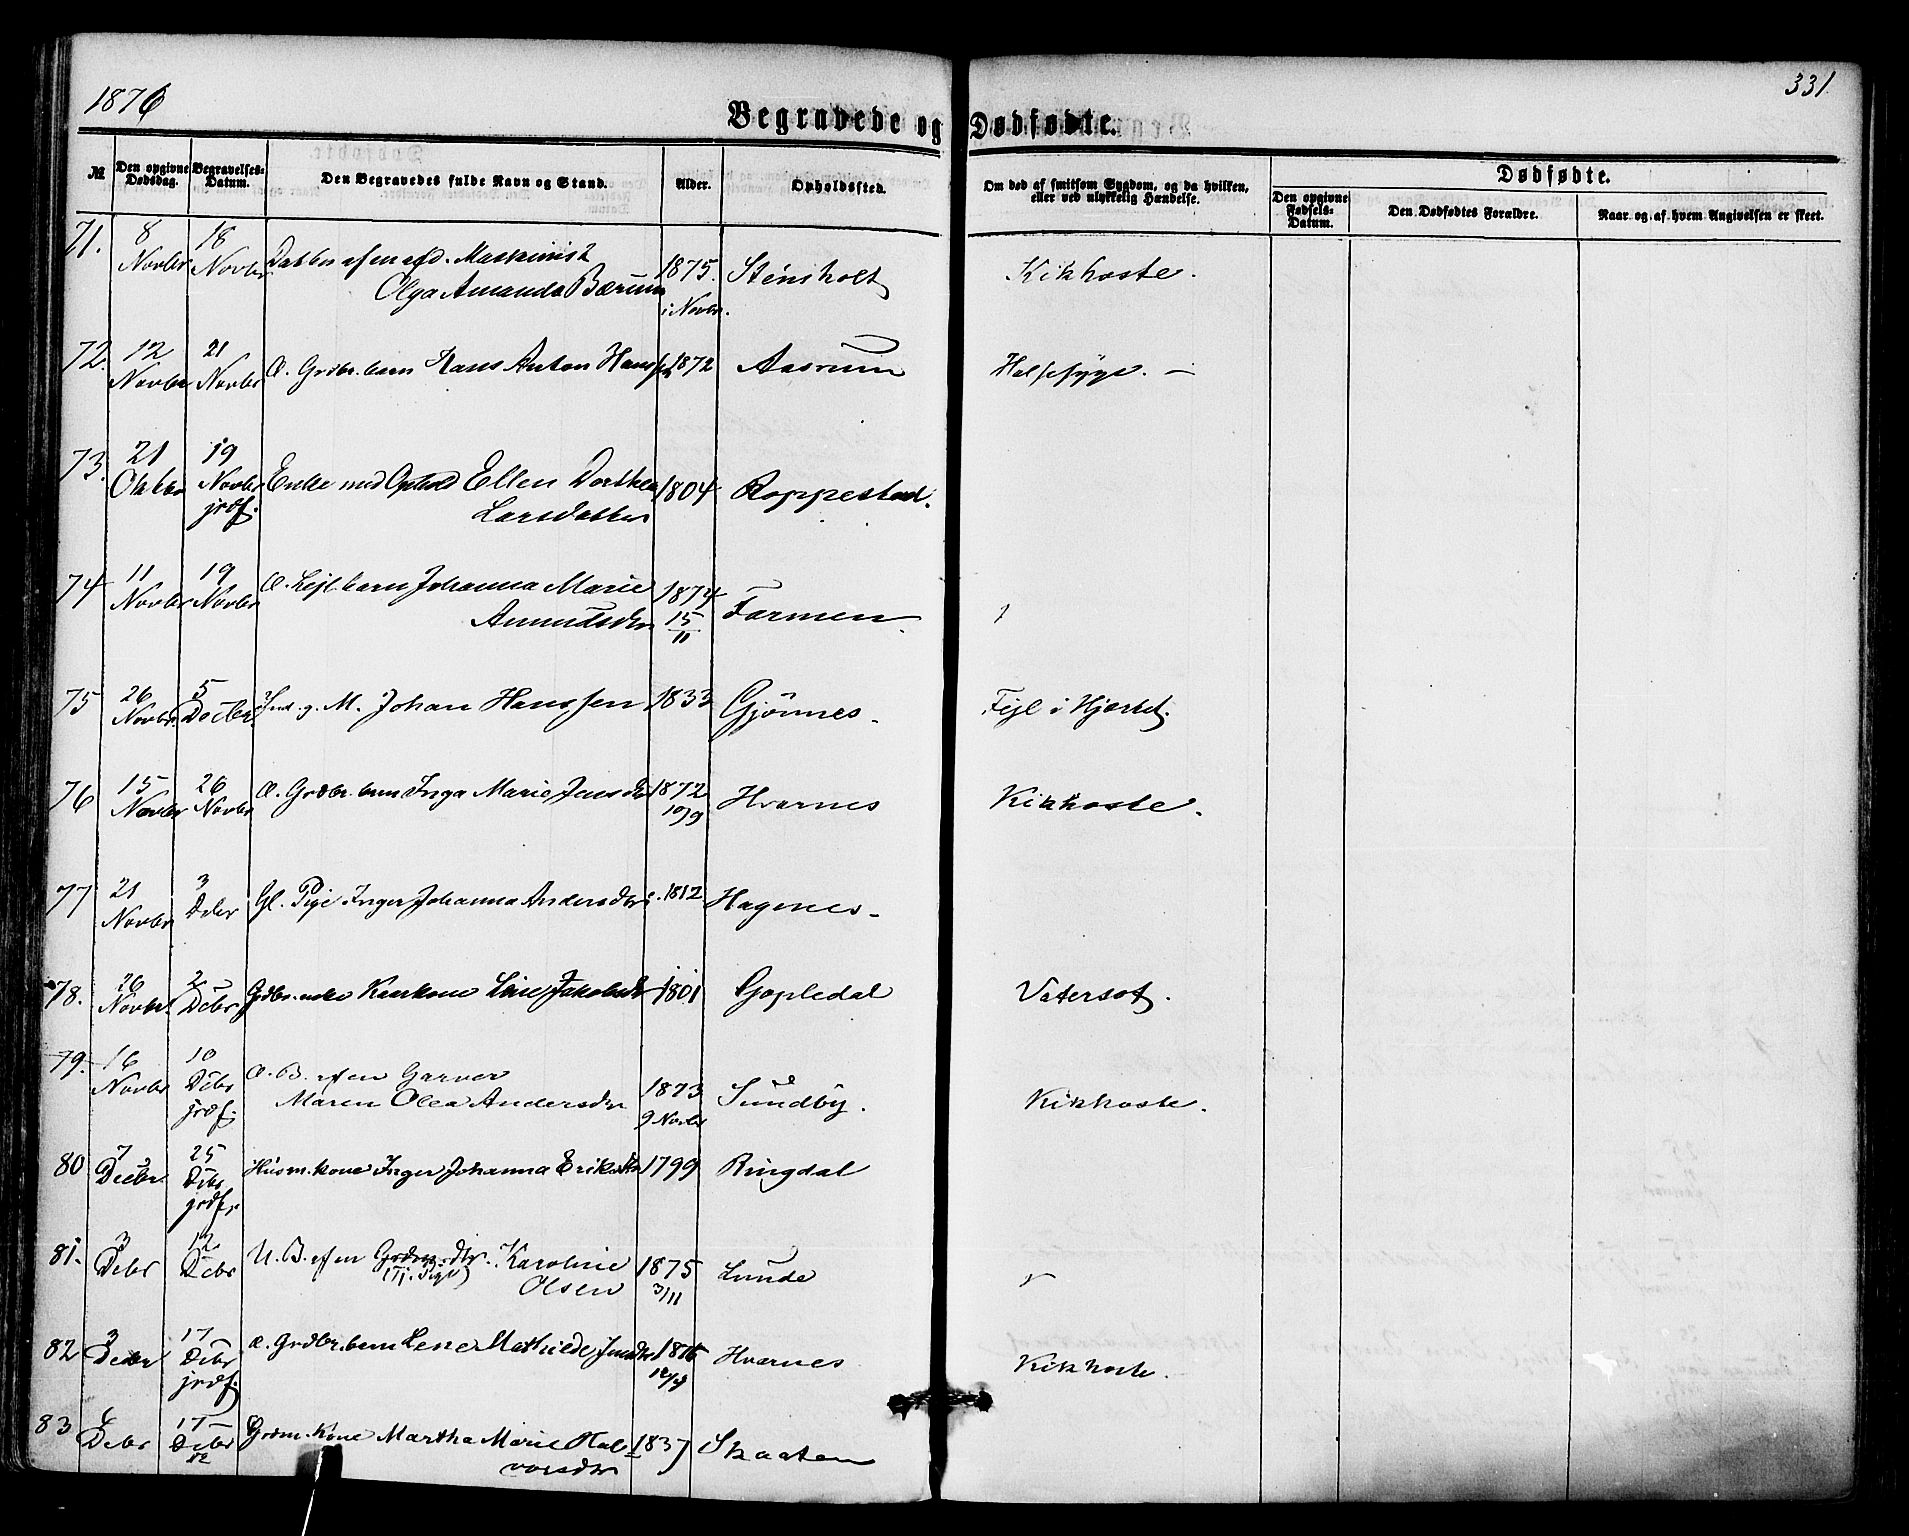 1876
331
Begravede og Dødfødte.
№
Den opgivne Dødsdag.
Begravelses-Datum.
Den Begravedes fulde Navn og Stand.
Alder.
Opholdssted.
Om død af smitsom Sygdom, og da hvilken, eller ved ulykkelig Hændelse.
Dødfødte.
Den opgivne Fødsels-Datum.
Den Dødfødtes Forældre.
Naar og af hvem Angivelsen er skeet.
71. 8 Novbr 18 Novbr Datter af en Maskinist 1875. Stensholt Kikhoste.
Olga Amanda Bærum i Novbr.
72. 12 Novbr 21 Novbr Æ. Grdbr. barn Hans Anton Hanssen 1872 Aasrum Halssyge. —
73. 21 Oktbr 19 Novbr jrdf. Enke med Ophold Ellen Dorthea 1804 Roppestad.
Larsdatter
74 11 Novbr 19 Novbr Æ. Lejl. barn Johanna Marie 1874 Farmen.
Amundsdtr 15/11
75 26 Novbr 5 Decbr Ind. g. M. Johan Hanssen 1833 Gjönnes. Fejl i Hjertet.
76 15 Novbr 26 Novbr Æ. Grdbr. barn Inga Marie Jensdtr 1872 Hvarnes Kikhoste.
10/9
77 21 Novbr 3 Debr Gl. Pige Inger Johanna Andersdtr 1812 Hagenes.
78. 26 Novbr 2 Debr Grdbr. enke Line Jakobsdtr 1801 Gopledal Vatersot.
79. 16 Novbr 10 Debr jrdf. Æ. B. af en Garver
Maren Olea Andersdtr 1873 Sundby. Kikhoste.
9 Novbr
80 7 Decbr 25 Debr jrdf. Husm. kone Inger Johanna Eriksdtr 1799 Ringdal
81. 3 Debr 12 Debr U. B. af en (Tj. Pige) Karoline 1875 Lunde
Olsen 3/11
82 3 Debr 17 Debr jrdf. Æ. Grdbr. barn Lene Mathilde Jensdtr Hvarnes Kikhoste.
83 6 Debr 17 Debr Grdm. Kone Martha Marie Hal- 1837 Skaaten
vorsdtr